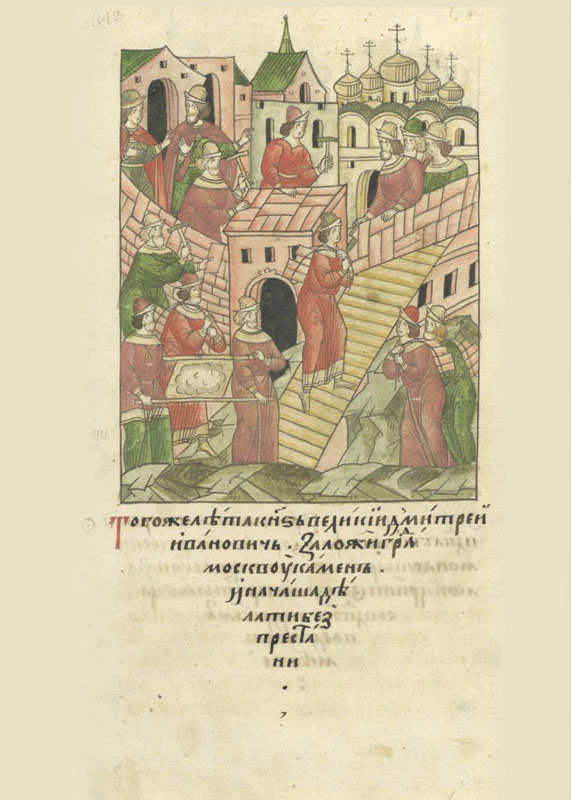 Тогожелѣтакнѕьвеликіидмитреи
ивановичь. Заложиградъ
москвоукаменъ.
иначашадѣ
латибез
преста
ни